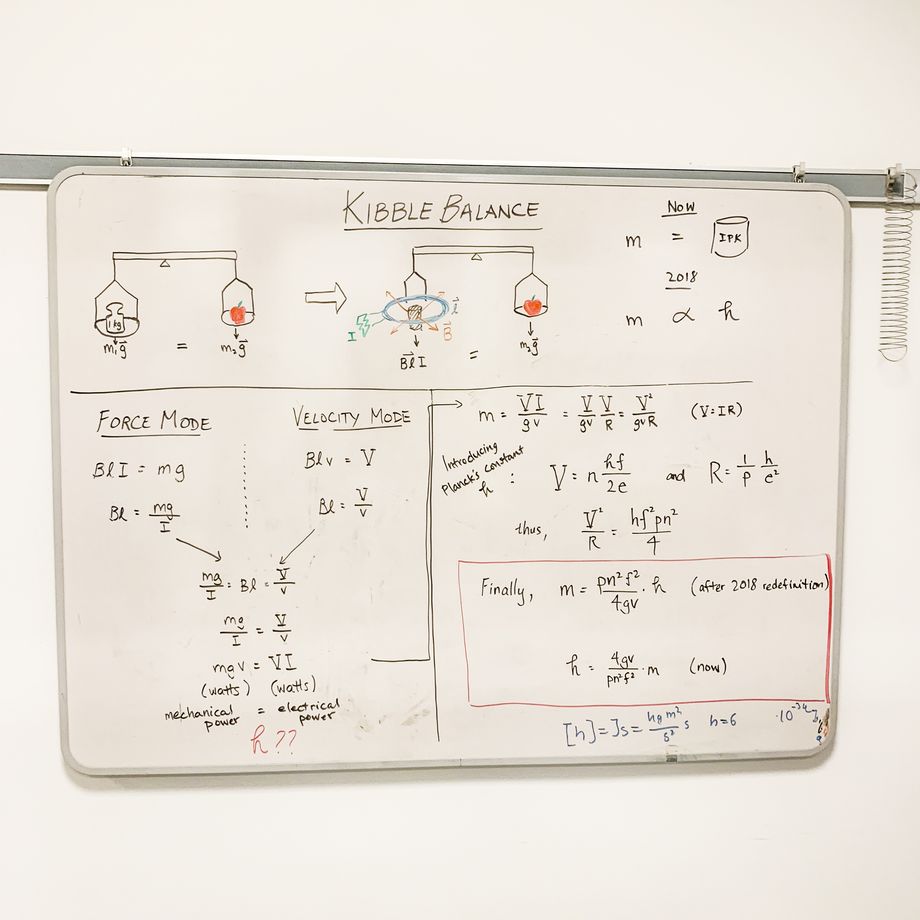 KIBBLE BALANCE
1 kg
m₁g⃗ = m₂g⃗
I l⃗ B⃗
B⃗lI = m₂g⃗
NOW
m = IPK
2018
m ∝ h
FORCE MODE
BlI = mg
Bl = mg/I
VELOCITY MODE
Blv = V
Bl = V/v
mg/I = Bl = V/v
mg/I = V/v
mgv = VI
(watts) (watts)
mechanical power = electrical power
h??
m = VI/gv = V/gv V/R = V²/gvR (V=IR)
Introducing
Planck's constant
h : V = n hf/2e and R = 1/p h/e²
thus, V²/R = hf²pn²/4
Finally, m = pn²f²/4gv · h (after 2018 redefinition)
h = 4gv/pn²f² · m (now)
[h] = Js = kg m²/s² s h=6 ·10⁻³⁴ J